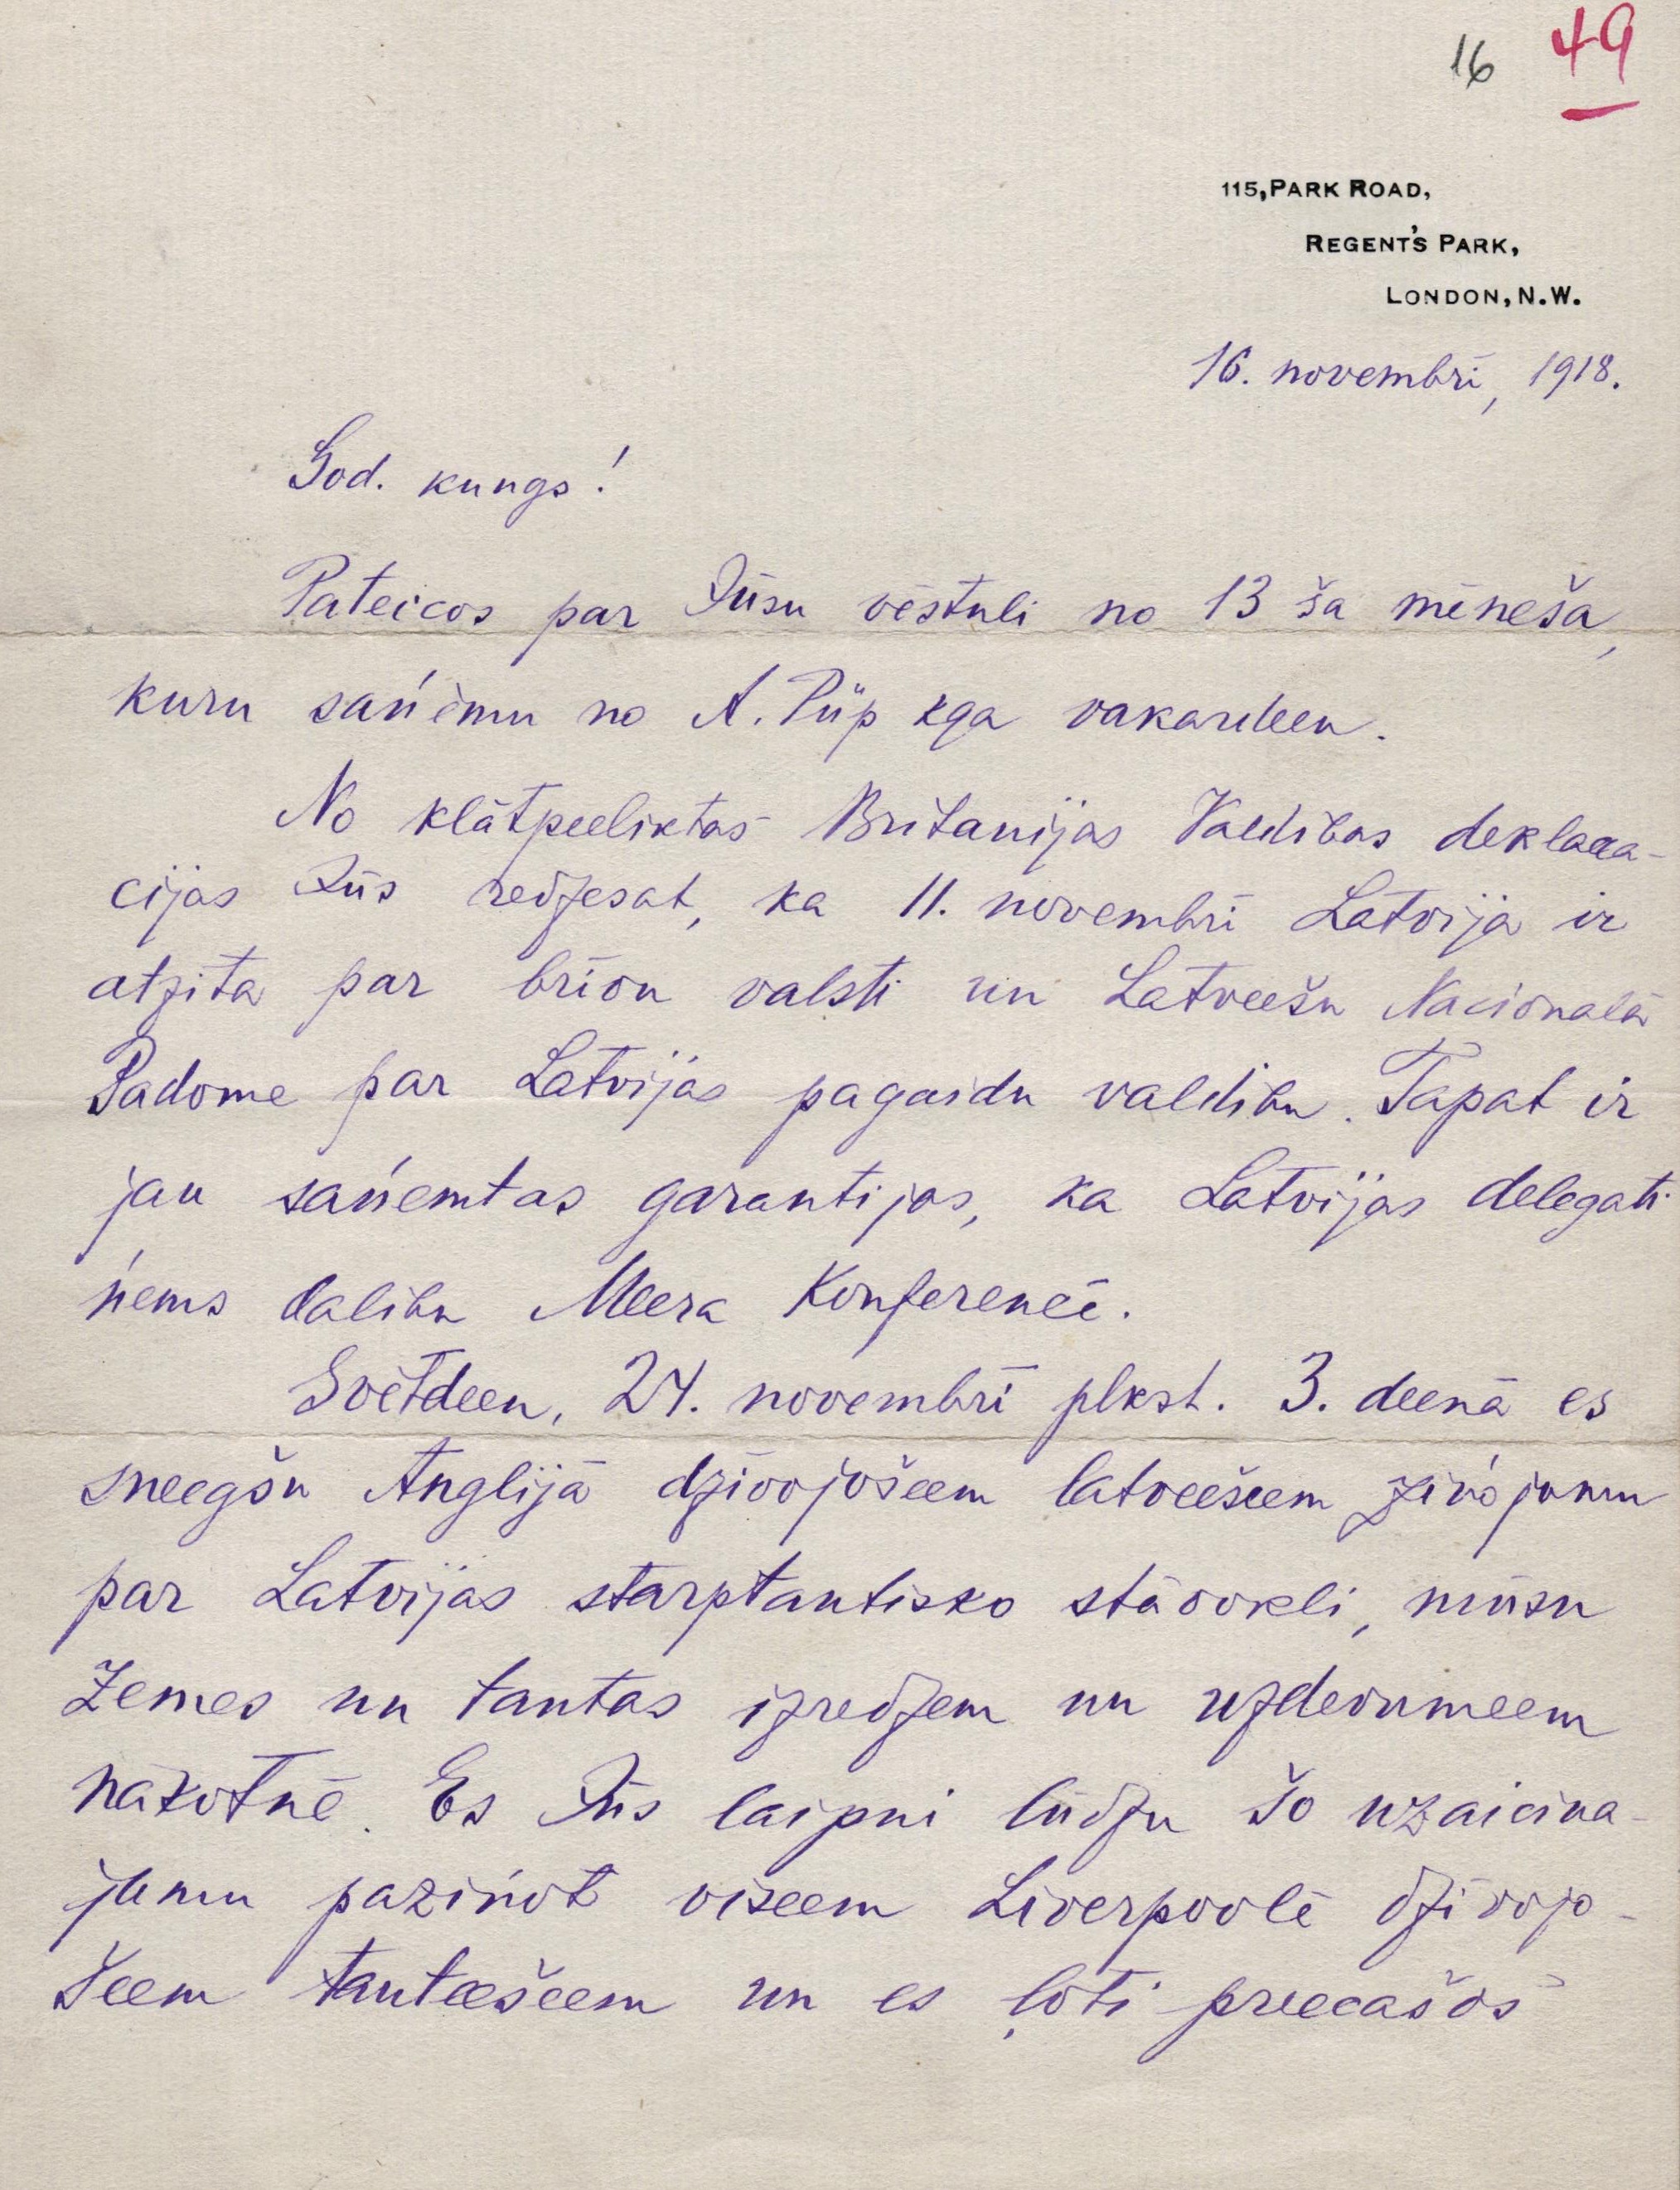 16 49
115, PARK ROAD,
REGENT'S PARK,
LONDON, N.W.
16. novembrī, 1918.
God. kungs!
Pateicos par Jūsu vēstuli no 13 šā mēneša,
kuru sańēmu no A. Piip kga vakardeen.
No klātpeeliktās Britanijas Valdibas deklara-
cijas Jūs redzesat, ka 11. novembrī Latvija ir
atzīta par brīvu valsti un Latveešu Nacionalā
Padome par Latvijas pagaidu valdibu. Tapat ir
jau sańemtas garantijas, ka Latvijas delegati
ńems dalibu Meera Konferencē.
Svētdeen, 24. novembrī plkst. 3. deenā es
sneegšu Anglijā dzīvojošeem latveešeem zińojumu
par Latvijas starptautisko stāvokli, mūsu
zemes un tautas izredzem un uzdevumeem
nākotnē. Es Jūs laipni lūdzu šo uzaicina-
jumu pazińot viseem Liverpoolē dzīvojo-
šeem tauteešeem un es ļoti preecašos